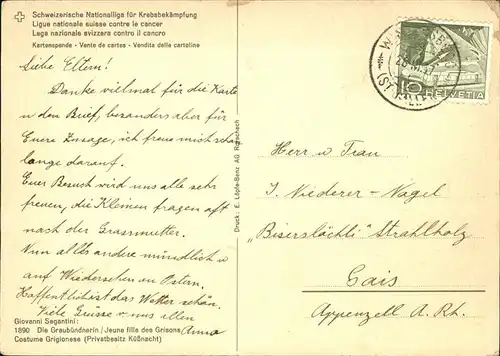 Schweizerische Nationalliga für Krebsbekämpfung
Ligue nationale suisse contre le cancer
Lega nazionale svizzera contro il cancro
Kartenspende - Vente de cartes - Vendita delle cartoline
Liebe Eltern!
Danke vielmal für die Karte
u den Brief, besonders aber für
Euere Zusage, ich freue mich schon
lange darauf.
Euer Besuch wird uns alle sehr
freuen, die Kleinen fragen oft
nach der Grossmutter.
Nun alles andere mündlich u
auf Wiedersehen an Ostern.
Hoffentlich ist das Wetter schön.
Viele Grüsse v uns allen
Anna
Giovanni Segantini:
1890 Die Graubündnerin / Jeune fille des Grisons
Costume Grigionese (Privatbesitz Küßnacht)
Druck: E. Löpfe-Benz AG Rorschach
10 HELVETIA
(ST.
Herr u Frau
J. Niederer-Nagel
"Biserslöchli" Strahlholz
Gais
Appenzell A. Rh.